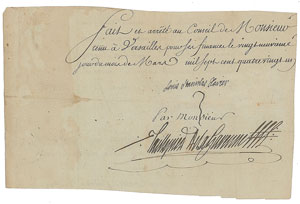 Fait et arrêté au Conseil de Monsieur
tenu à Versailles pour ses finances le vingt neuvieme
jour du mois de Mars mil sept cent quatre vingt un
Louis Stanislas Xavier
Par Monsieur